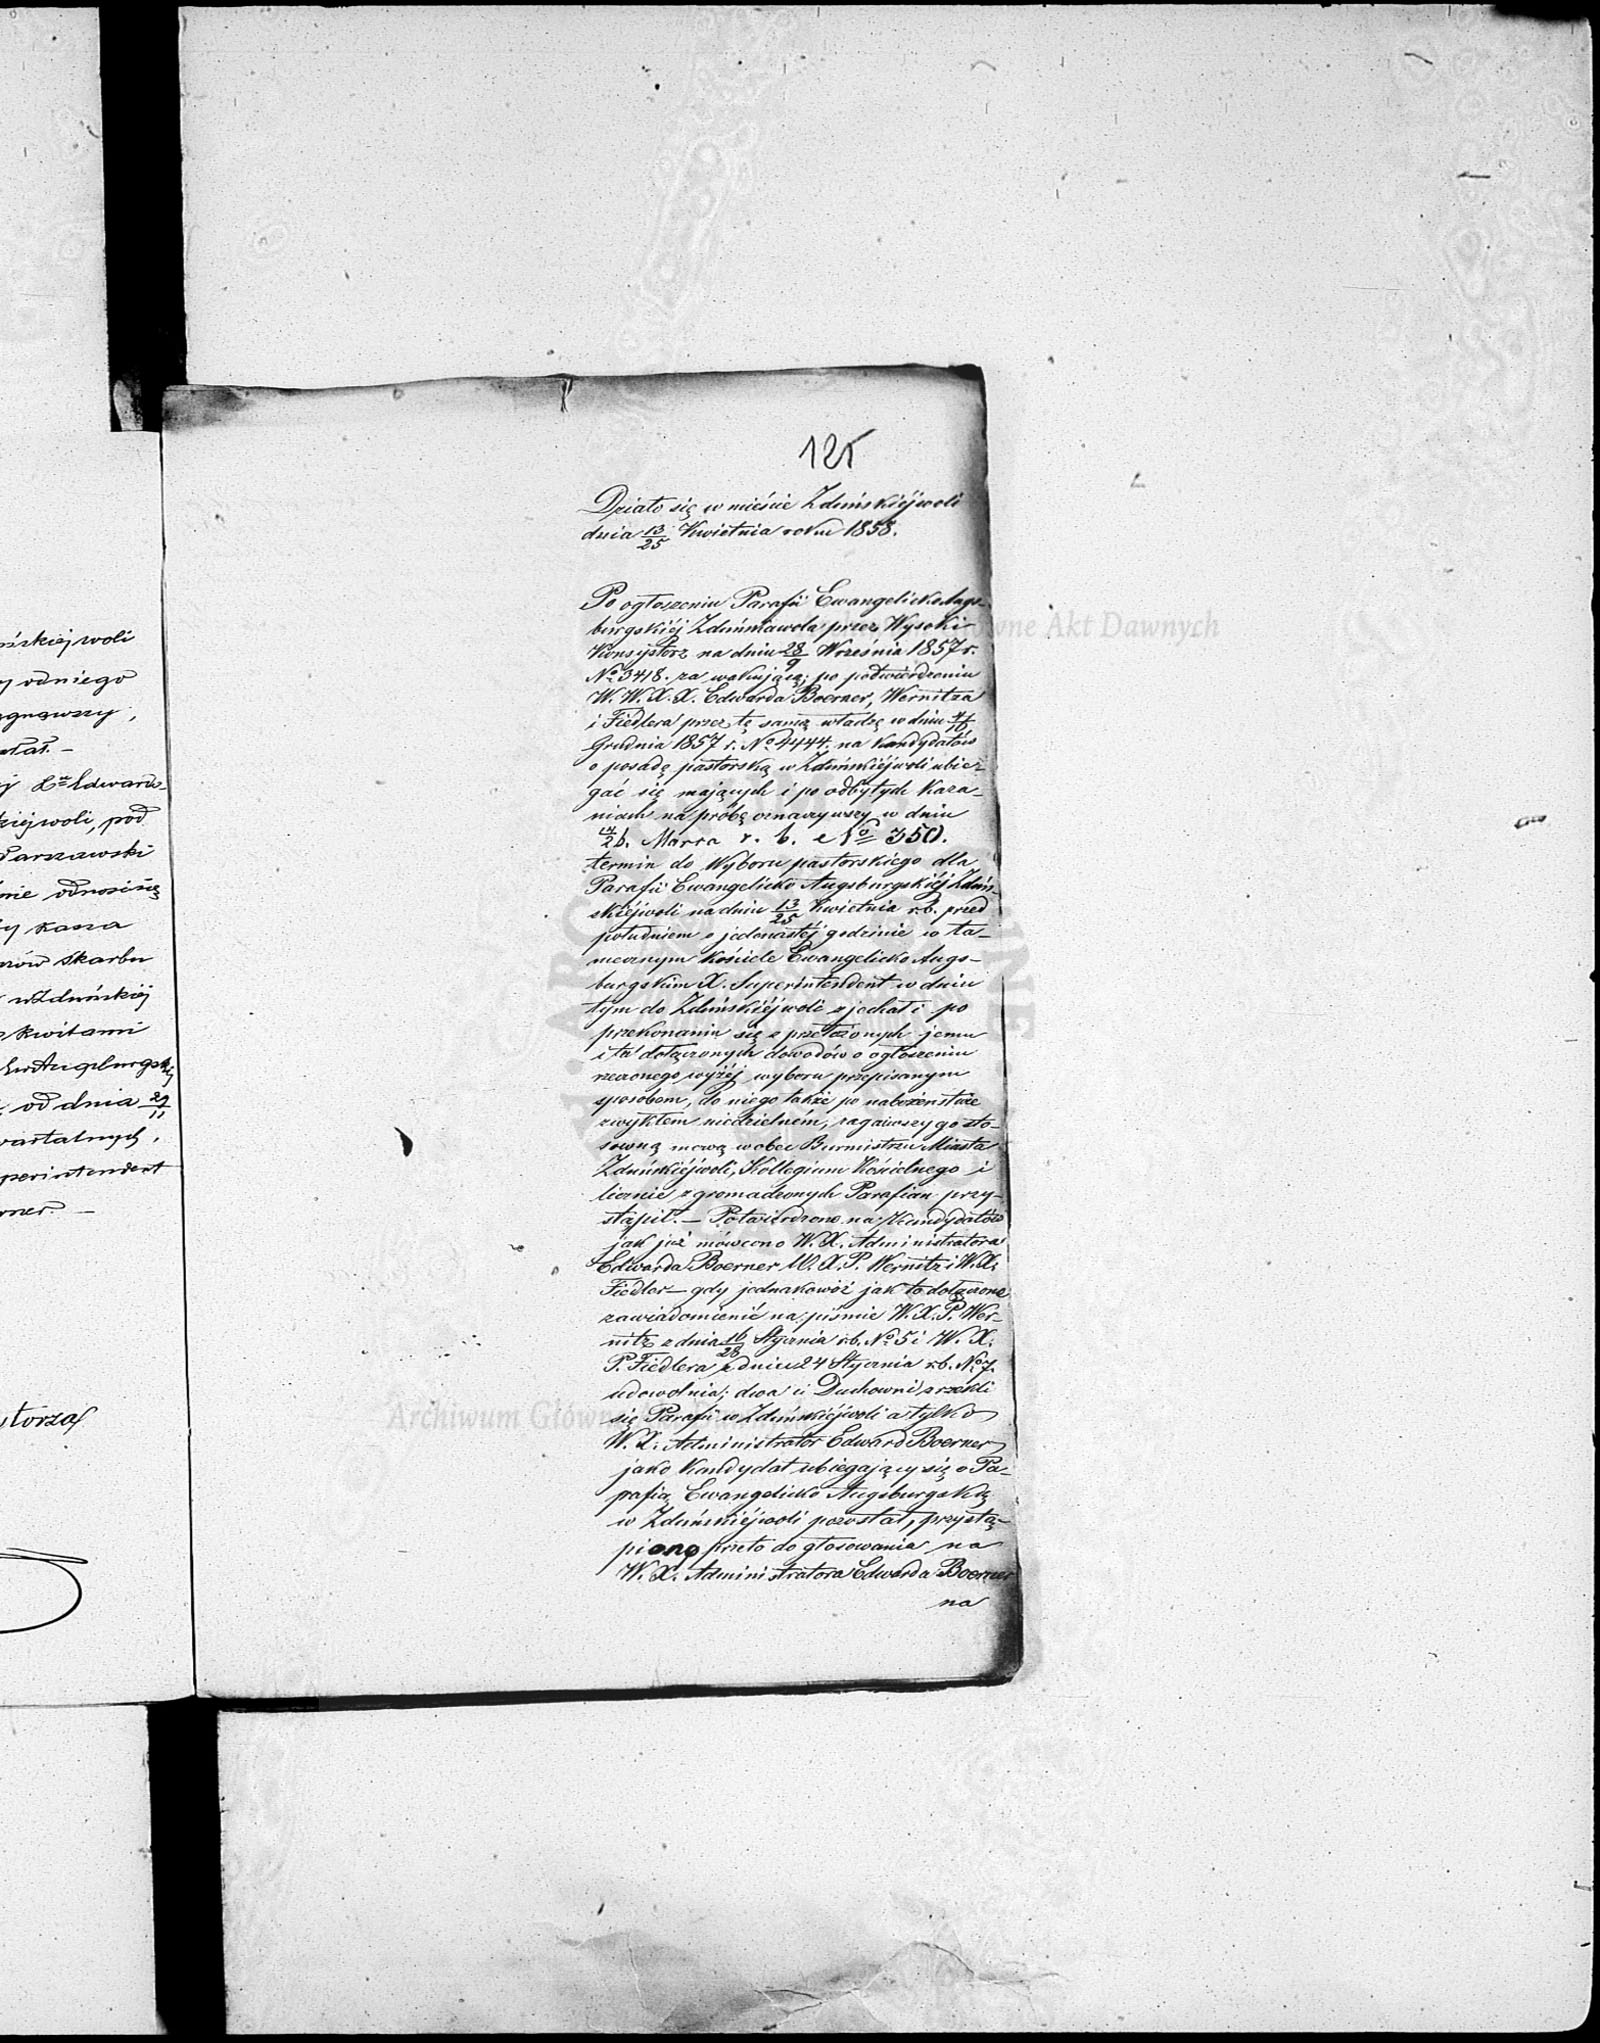 125
Działo się w mieście Zduńskiéjwoli
dnia 13/25 Kwietnia roku 1858.
Po ogłoszeniu Parafii Ewangelicko Augs-
burgskiéj Zduńskawola przez Wysoki
Konsystorz na dniu 28/9 Września 1857 r.
No 3418. za wakującą; po podtwierdzeniu
W. W. X. X. Edwarda Boerner, Wernitza
i Fiedlera przez tę samą władzę w dniu 4/16
Grudnia 1857 r. No 4444. na Kandydatów
o posadę pastorską w Zduńskiéjwoli ubie-
gać się mających i po odbytych Kaza-
niach na próbę oznaczywszy w dniu
26. Marca r. b. No 350.
termin do Wyboru pastorskiego dla
Parafii Ewangelicko Augsburgskiéj Zduń-
skiéjwoli na dniu 13/25 Kwietnia r.b. przed
południem o jedenastéj godzinie w ta-
mecznym Kościele Ewangelicko Augs-
burgskim X. Superintendent w dniu
tym do Zduńskiéjwoli zjechał i po
przekonaniu się z przełożonych jemu
i tu dołączonych dowodów o ogłoszeniu
rzeczonego wyżéj wyboru przepisanym
sposobem, do niego także po nabożeństwie
zwykłem niedzielném, zagaiwszy go sto-
sowną mową wobec Burmistrza Miasta
Zduńskiéjwoli, Kollegium Kościelnego i
licznie zgromadzonych Parafian przy-
stąpił. — Potwierdzono na Kandydatów
jak już mówiono W. X. Administratora
Edwarda Boerner W. X. P. Wernitz i W. X.
Fiedler — gdy jednakowóż jak to dołączone
zawiadomienie na piśmie W. X. P. Wer-
nitz z dnia 16/28 Stycznia r.b. No 5 i W. X.
P. Fiedlera z dnia 24 Stycznia r.b. No 7.
udowolnia; dwa ci Duchowni zrzekli
się Parafii w Zduńskiéjwoli a tylko
W. X. Administrator Edward Boerner
jako Kandydat ubiegający się o Pa-
rafią Ewangelicko Augsburgską
w Zduńskiéjwoli pozostał, przystą-
piono przeto do głosowania na
W. X. Administratora Edwarda Boerner
na
woli
odniego
Edwarda
woli, pod
Warszawski
odnosi się
kassa
Skarbu
w Zduńskiéj
kwitami
Augsburgskiéj
od dnia 29/11
Superintendent
Archiwum Główne Akt Dawnych